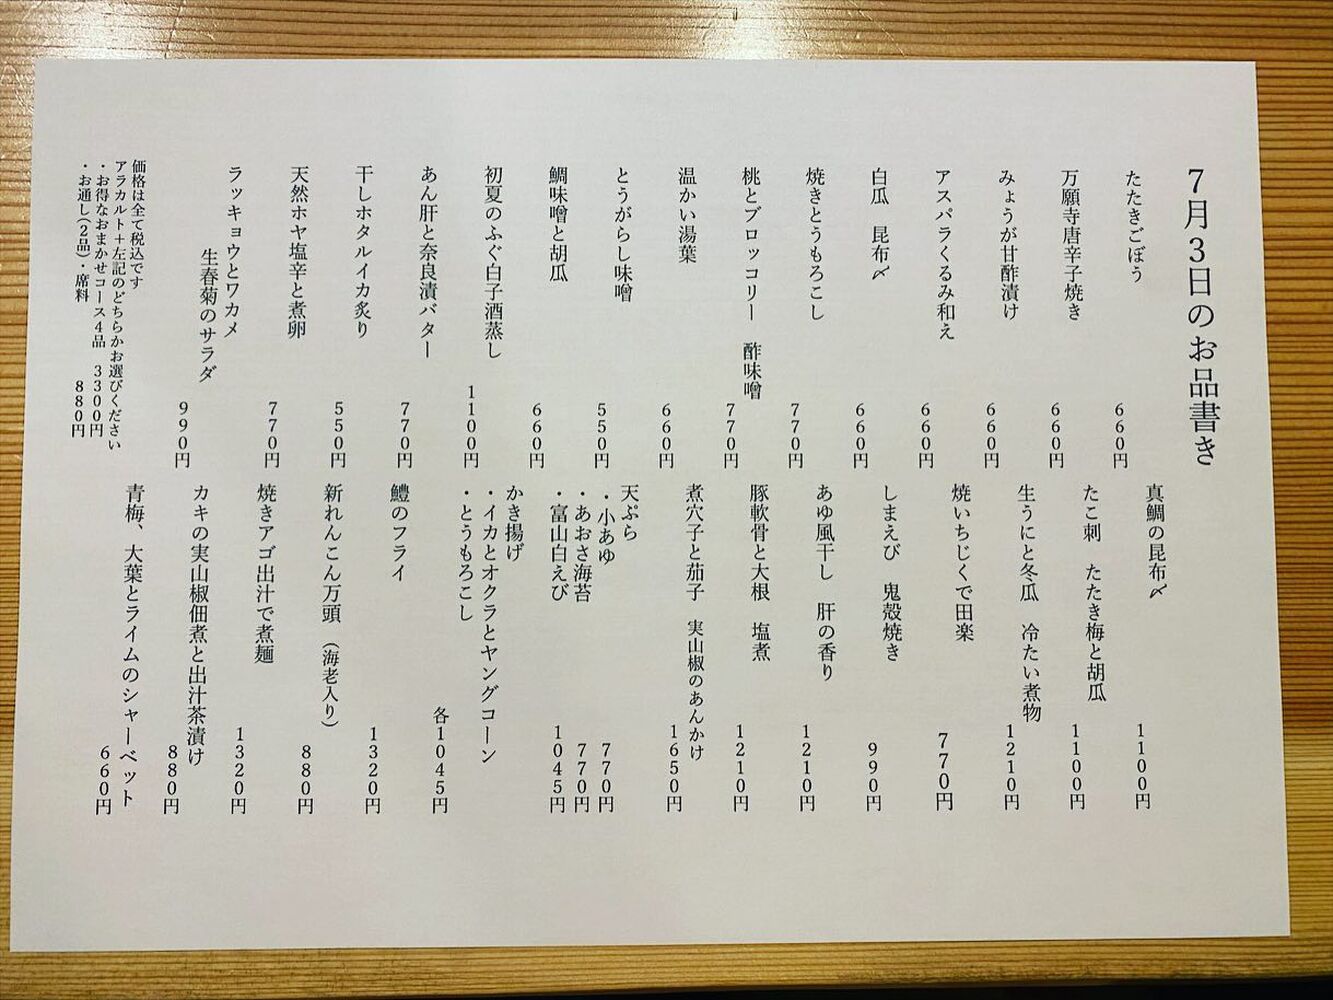 7月3日のお品書き
たたきごぼう
660円
万願寺唐辛子焼き
660円
みょうが甘酢漬け
660円
アスパラくるみ和え
660円
白瓜　昆布〆
660円
焼きとうもろこし
770円
桃とブロッコリー　酢味噌
770円
温かい湯葉
660円
とうがらし味噌
550円
鯛味噌と胡瓜
660円
初夏のふぐ白子酒蒸し
1100円
あん肝と奈良漬バター
770円
干しホタルイカ炙り
550円
天然ホヤ塩辛と煮卵
770円
ラッキョウとワカメ
生春菊のサラダ
990円
価格は全て税込です
アラカルト＋左記のどちらかお選びください
・お得なおまかせコース4品　3300円
・お通し(2品)・席料　880円
真鯛の昆布〆
1100円
たこ刺　たたき梅と胡瓜
1100円
生うにと冬瓜　冷たい煮物
1210円
焼いちじくで田楽
770円
しまえび　鬼殻焼き
990円
あゆ風干し　肝の香り
1210円
豚軟骨と大根　塩煮
1210円
煮穴子と茄子　実山椒のあんかけ
1650円
天ぷら
・小あゆ　770円
・あおさ海苔　770円
・富山白えび　1045円
かき揚げ
・イカとオクラとヤングコーン
・とうもろこし
各1045円
鱧のフライ
1320円
新れんこん万頭　(海老入り)
880円
焼きアゴ出汁で煮麺
1320円
カキの実山椒佃煮と出汁茶漬け
880円
青梅、大葉とライムのシャーベット
660円